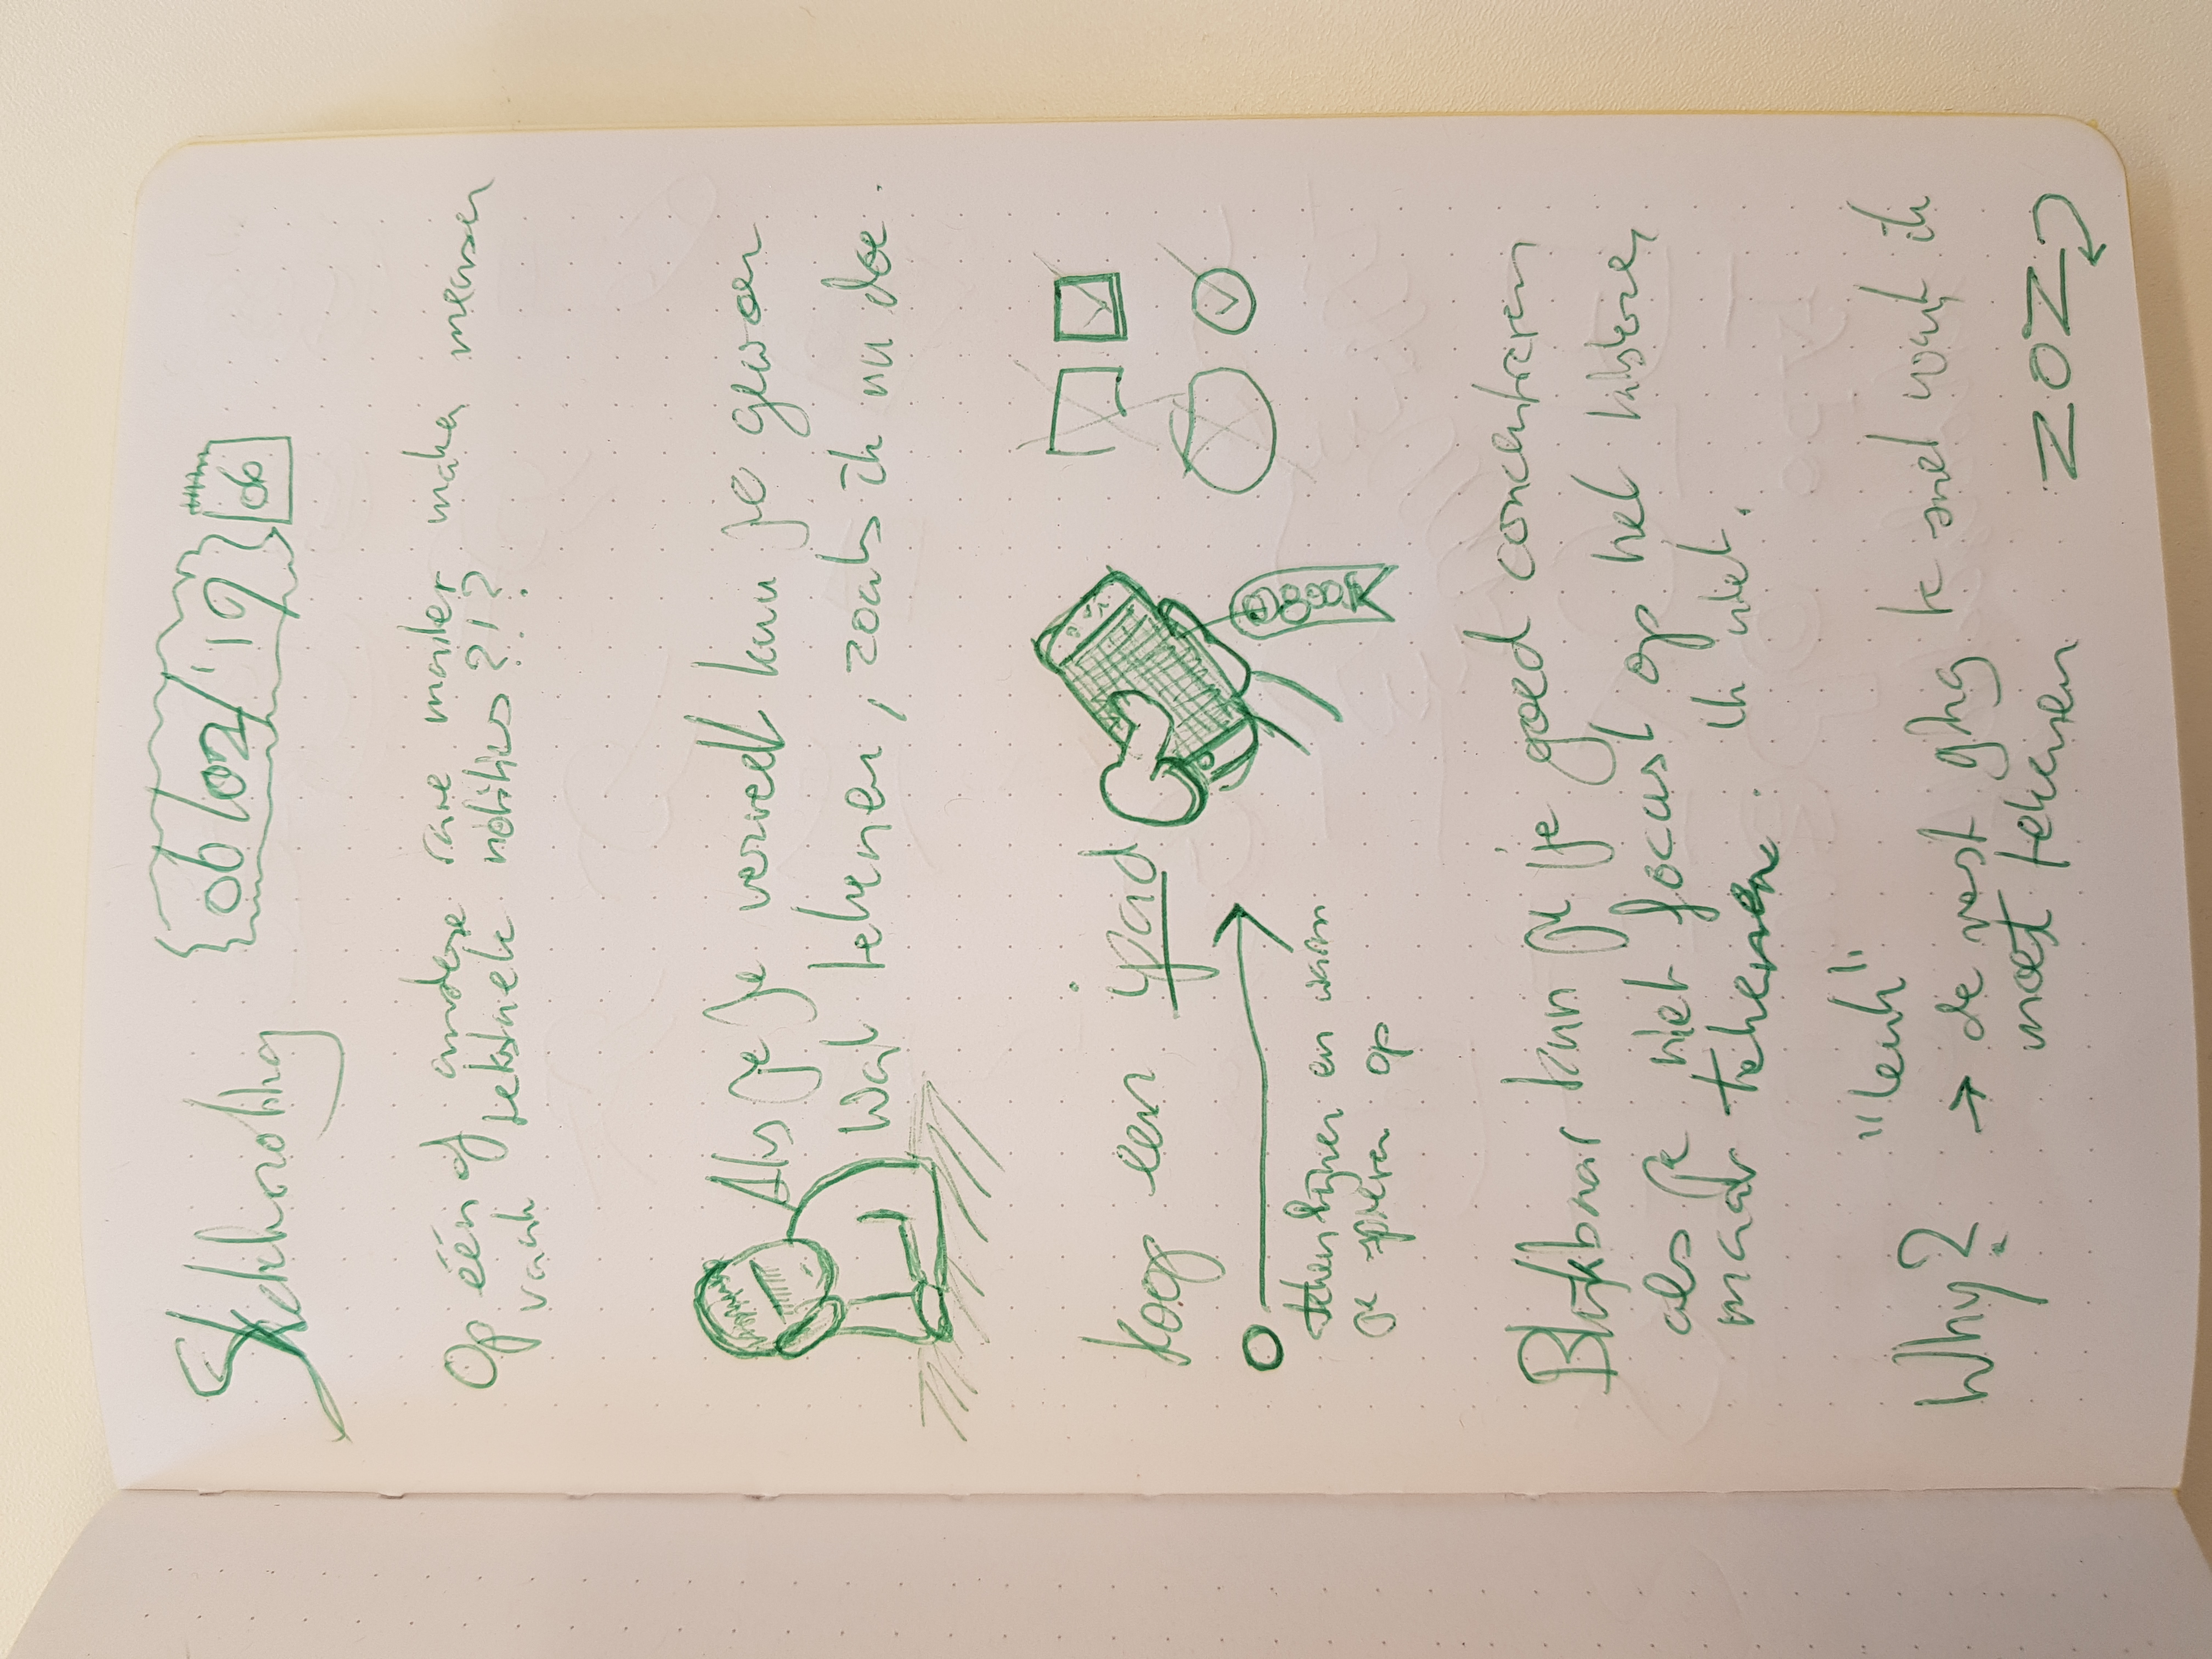 Sketchnoting 06/02/'19 06
Op één of andere rare manier maken mensen
vaak tekstuele notities?!?
Als je je verveelt kun je gewoon
wat tekenen, zoals ik nu doe.
Koop een ipad
teken lijnen en warm
je spieren op
Blijkbaar kun je je goed concentreren
als je niet focust op het luisteren,
maar tekenen. Ik niet.
"leuk"
Why? → de rest ging te snel want ik
moest tekenen
ZOZ